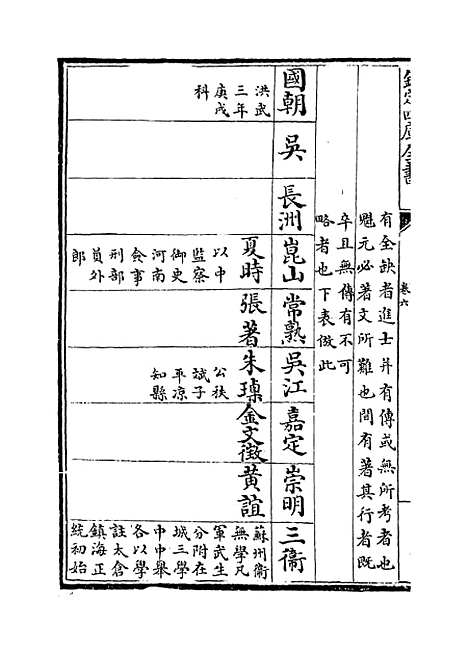 欽定四庫全書
卷六
有全缺者進士并有傳或無所考者也
魁元必著文所難也間有著其行者既
卒且無傳有不可
略者也下表倣此
國朝
吳
長洲
崑山
常熟
吳江
嘉定
崇明
三衛
洪武
三年
庚戌
科
夏時
以中
監察
御史
河南
僉事
刑部
員外
郎
張著
朱
公秩
珷子
平凉
知縣
金文徵
黃誼
蘇州衛
無學凡
軍武生
分附在
城三學
中中舉
各以學
註太倉
鎮海正
統初始